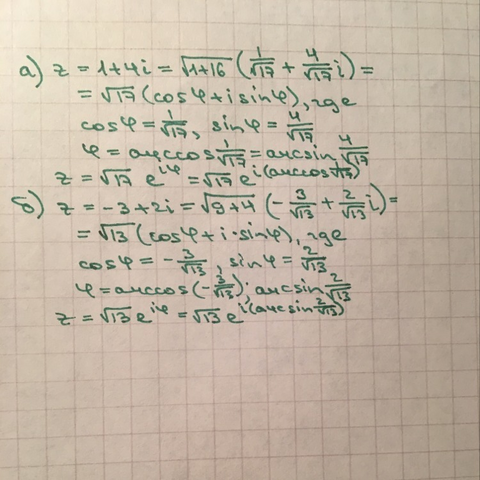 а) z = 1+4i = √1+16 (1/√17 + 4/√17 i) =
= √17 (cosφ + i sinφ), где
cosφ = 1/√17, sinφ = 4/√17
φ = arccos 1/√17 = arcsin 4/√17
z = √17 e^iφ = √17 e^i(arccos 1/√17)
б) z = -3+2i = √9+4 (-3/√13 + 2/√13 i) =
= √13 (cosφ + i·sinφ), где
cosφ = -3/√13, sinφ = 2/√13
φ = arccos(-3/√13); arcsin 2/√13
z = √13 e^iφ = √13 e^i(arcsin 2/√13)